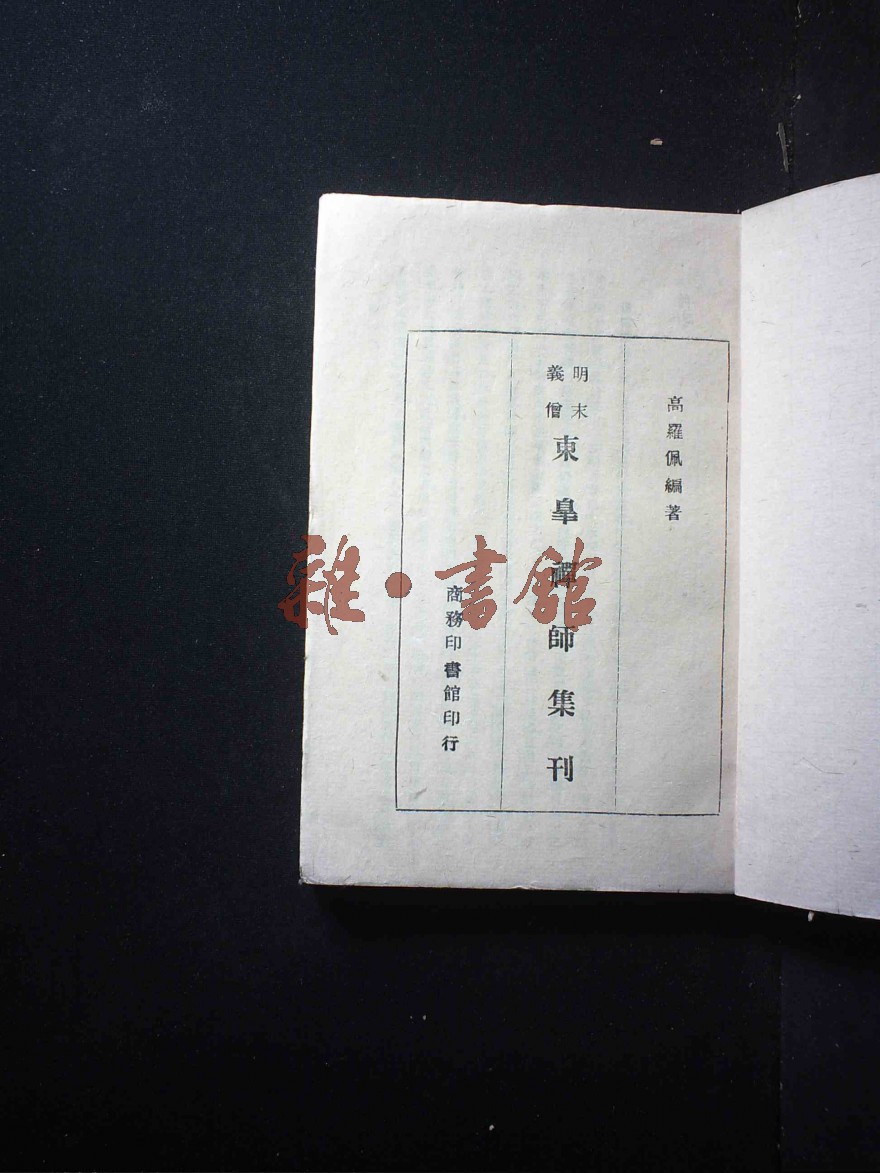 高羅佩編著
明末義僧
東皐禪師集刊
商務印書館印行
雜·書館